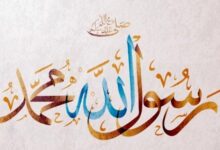 صلى الله عليه وسلم
محمد رسول الله